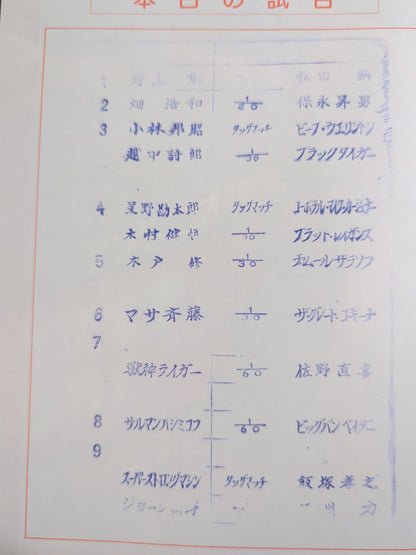 本日の試合
1 野上 彰 松田 納
2 畑 浩和 1/30 保永昇男
3 小林邦昭 タッグマッチ ビーフ・ウエリントン
越中詩郎 1/30 ブラックタイガー
4 星野勘太郎 タッグマッチ
木村健悟 1/30 ブラット・レイガンス
5 木戸 修 1/30 チムール・ザラソフ
6 マサ斉藤 1/30 ザ・グレート・コキーナ
7
獣神ライガー 1/60 佐野直喜
8 サルマンハシミコフ 1/60 ビッグバンベイダー
9
スーパーストロングマシン タッグマッチ 飯塚孝之
力